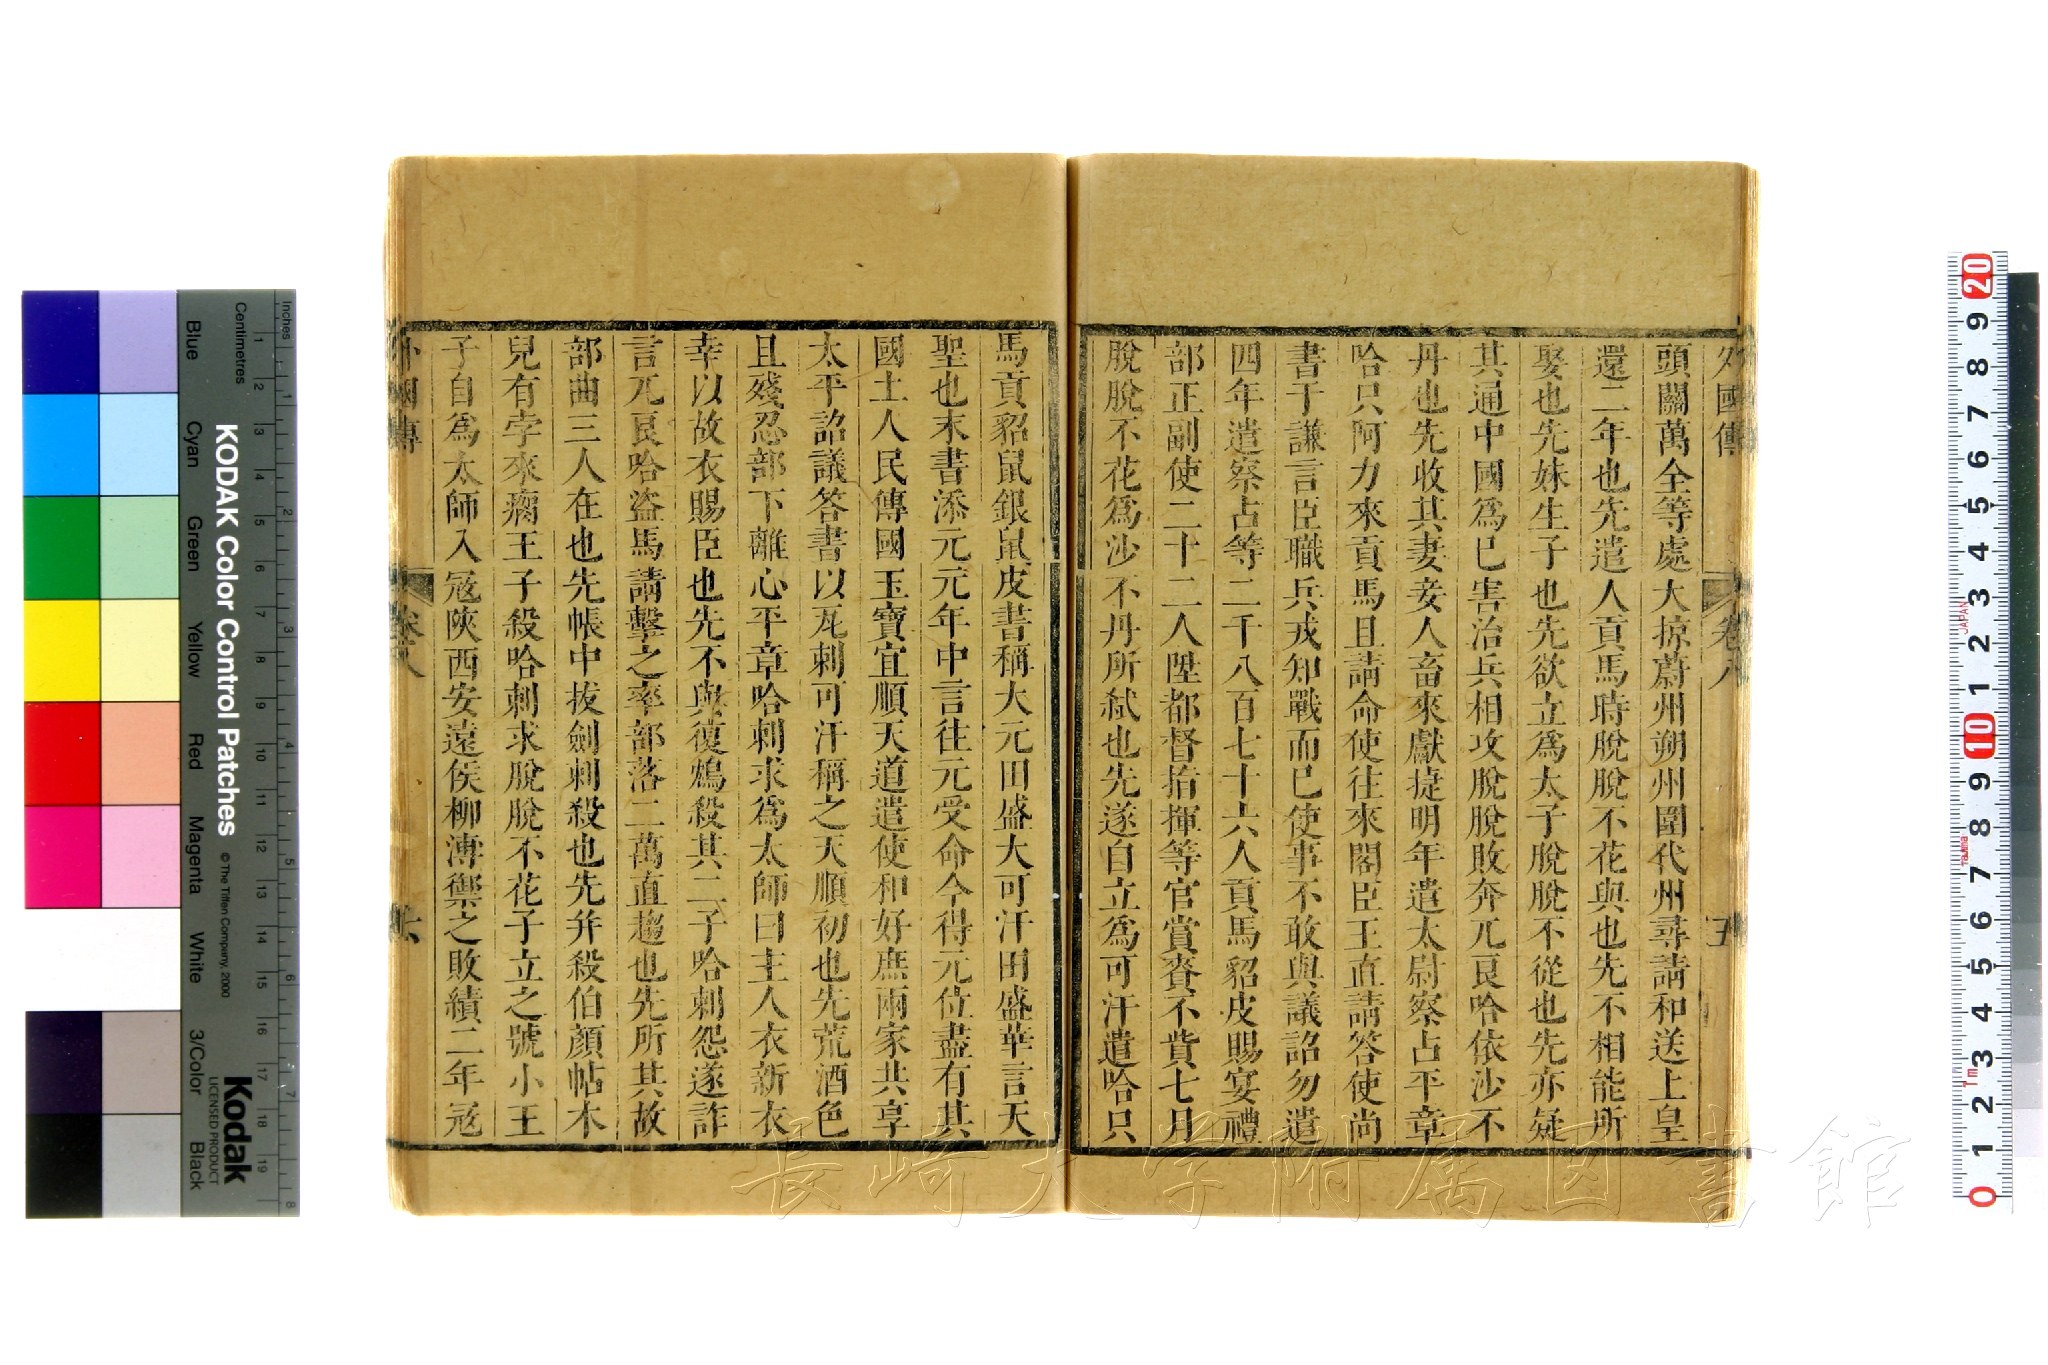 外國傳 卷八 五
頭關萬全等處大掠蔚州朔州圍代州尋請和送上皇
還二年也先遣人貢馬時脫脫不花與也先不相能所
娶也先妹生子也先欲立爲太子脫脫不從也先亦疑
其通中國爲已害治兵相攻脫脫敗奔兀良哈依沙不
丹也先收其妻妾人畜來獻捷明年遣太尉察占平章
哈只阿力來貢馬且請命使往來閣臣王直請答使尚
書于謙言臣職兵戎知戰而已使事不敢與議詔勿遣
四年遣察占等二千八百七十六人貢馬貂皮賜宴禮
部正副使二十二人陞都督指揮等官賞賚不貲七月
脫脫不花爲沙不丹所弑也先遂自立爲可汗遣哈只
馬貢貂鼠銀鼠皮書稱大元田盛大可汗田盛華言天
聖也末書添元元年中言往元受命今得元位盡有其
國土人民傳國玉寶宜順天道遣使和好庶兩家共享
太平詔議答書以瓦剌可汗稱之天順初也先荒酒色
且殘忍部下離心平章哈剌求爲太師曰主人衣新衣
幸以故衣賜臣也先不與復鴆殺其二子哈剌怨遂詐
言兀良哈盜馬請擊之率部落二萬直趨也先所其故
部曲三人在也先帳中拔劍刺殺也先并殺伯顏帖木
兒有孛來癿王子殺哈剌求脫脫不花子立之號小王
子自爲太師入寇陝西安遠侯柳溥禦之敗績二年寇
外國傳 卷八 六
KODAK Color Control Patches
© The Tiffen Company, 2000
Kodak
LICENSED PRODUCT
Inches
Centimetres
Blue
Cyan
Green
Yellow
Red
Magenta
White
3/Color
Black
JAPAN
長崎大学附属図書館